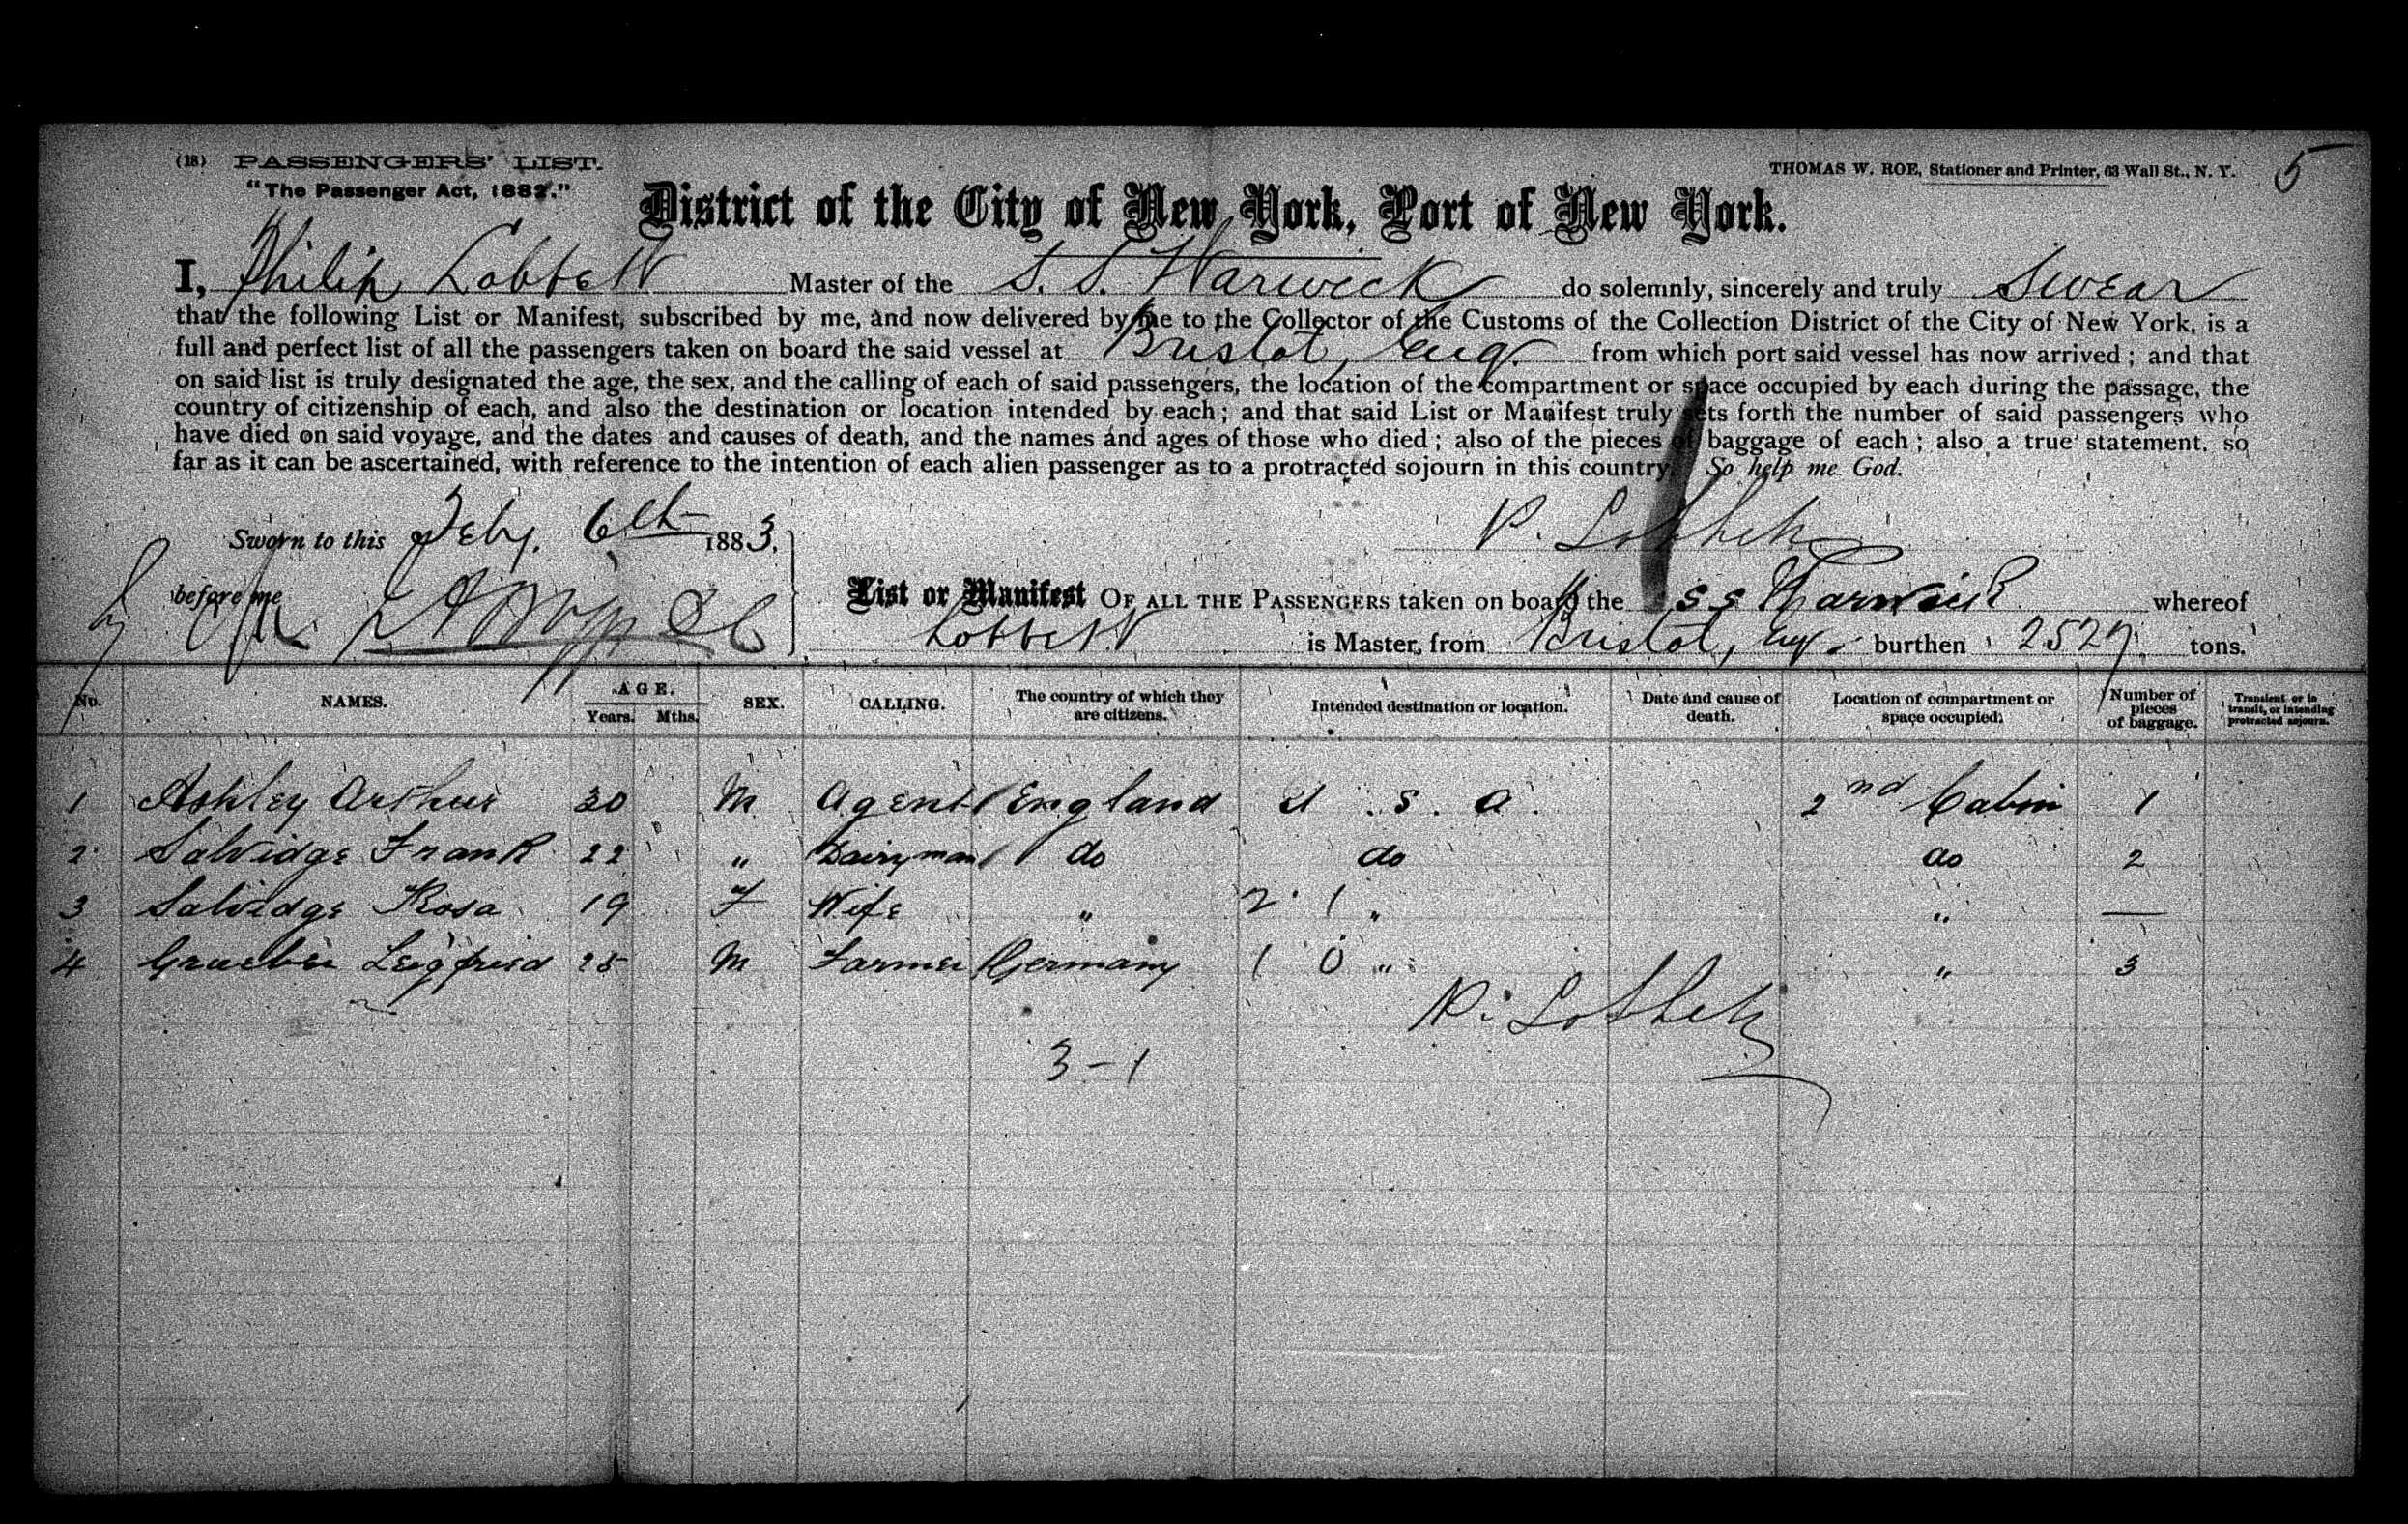 (18) PASSENGERS' LIST.
THOMAS W. ROE, Stationer and Printer, 63 Wall St., N. Y.
5
"The Passenger Act, 1882."
District of the City of New York, Port of New York.
I, Philip Lobbett Master of the S. S. Warwick do solemnly, sincerely and truly Swear
that the following List or Manifest, subscribed by me, and now delivered by me to the Collector of the Customs of the Collection District of the City of New York, is a
full and perfect list of all the passengers taken on board the said vessel at Bristol, Eng. from which port said vessel has now arrived; and that
on said list is truly designated the age, the sex, and the calling of each of said passengers, the location of the compartment or space occupied by each during the passage, the
country of citizenship of each, and also the destination or location intended by each; and that said List or Manifest truly sets forth the number of said passengers who
have died on said voyage, and the dates and causes of death, and the names and ages of those who died; also of the pieces of baggage of each; also a true statement, so
far as it can be ascertained, with reference to the intention of each alien passenger as to a protracted sojourn in this country. So help me God.
Sworn to this Feby. 6th 1883.
P. Lobbett
before me
List or Manifest OF ALL THE PASSENGERS taken on board the S S Warwick whereof
Lobbett is Master, from Bristol, Eng. burthen 2527 tons.
No. NAMES. AGE. Years. Mths. SEX. CALLING. The country of which they are citizens. Intended destination or location. Date and cause of death. Location of compartment or space occupied. Number of pieces of baggage. Transient or in transit, or intending protracted sojourn.
1 Ashley Arthur 30 M Agent England U. S. A. 2nd Cabin 1
2 Salvidge Frank 22 " Dairyman do do do 2
3 Salvidge Rosa 19 F Wife " 2 1 " " —
4 Grueber Leigfried 25 M Farmer Germany 1 0 " " 3
P. Lobbett
3-1